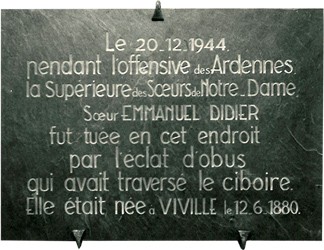 Le 20-12-1944.
pendant l'offensive des Ardennes.
la Supérieure des Sœurs de Notre-Dame.
Sœur EMMANUEL DIDIER
fut tuée en cet endroit
par l'éclat d'obus
qui avait traversé le ciboire.
Elle était née a VIVILLE le 12.6.1880.